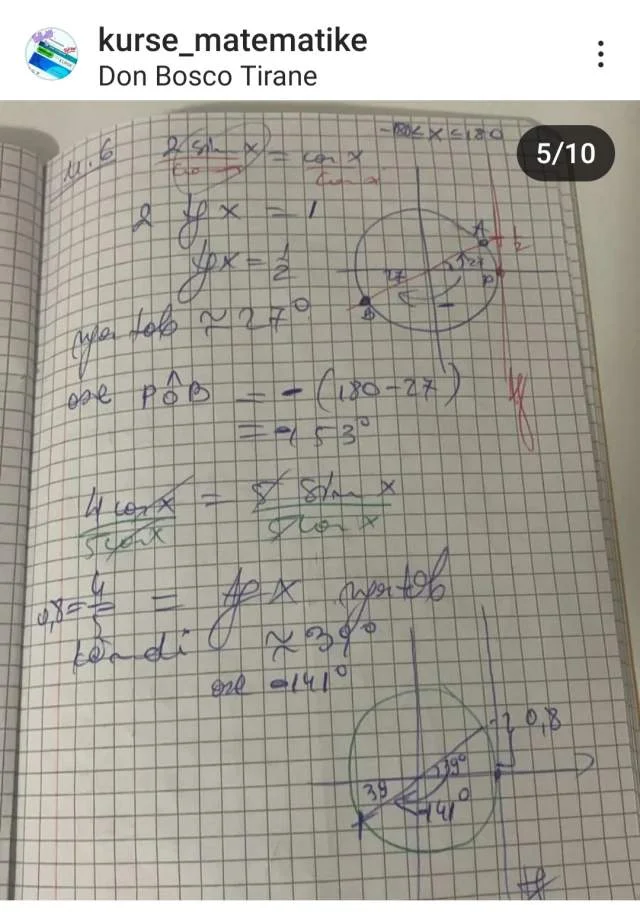 kurse_matematike
Don Bosco Tirane
5/10
U.6 2 sin x / cos x = cos x / cos x
-180 ≤ x ≤ 180
2 tg x = 1
tg x = 1/2
A
1/2
27
27
P
B
≈ 27°
ose PÔB = - (180-27)
= -153°
tg
4 cos x / 5 cos x = 5 sin x / 5 cos x
0,8 = 4/5 = tg x
këndi ≈ 39°
ose -141°
0,8
39°
39
-141°
tg